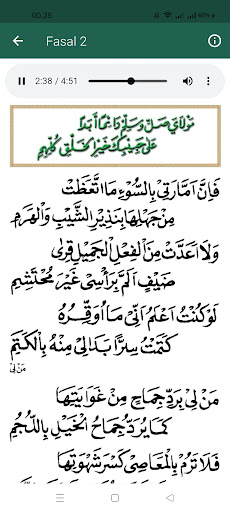 00.28
46%
Fasal 2
2:38 / 4:51
مَوْلَايَ صَلِّ وَسَلِّمْ دَائِمًا أَبَدًا
عَلَى حَبِيْبِكَ خَيْرِ الْخَلْقِ كُلِّهِمِ
فَإِنَّ اَمَّارَتِيْ بِالسُّوْءِ مَا اتَّعَظَتْ
مِنْ جَهْلِهَا بِنَذِيْرِ الشَّيْبِ وَالْهَرَمِ
وَلَا اَعَدَّتْ مِنَ الْفِعْلِ الْجَمِيْلِ قِرٰى
ضَيْفٍ اَلَمَّ بِرَأْسِيْ غَيْرَ مُحْتَشِمِ
لَوْ كُنْتُ اَعْلَمُ اَنِّيْ مَا اُوَقِّرُهُ
كَتَمْتُ سِرًّا بَدَا لِيْ مِنْهُ بِالْكَتَمِ
مَنْ لِيْ
مَنْ لِيْ بِرَدِّ جِمَاحٍ مِنْ غَوَايَتِهَا
كَمَا يُرَدُّ جِمَاحُ الْخَيْلِ بِاللُّجُمِ
فَلَا تَرُمْ بِالْمَعَاصِيْ كَسْرَ شَهْوَتِهَا